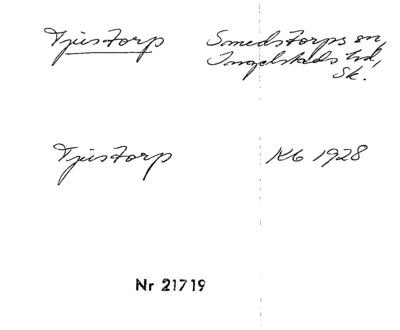 Tjustorp Smedstorps sn,
Ingelstads hd,
Sk.
Tjustorp K6 1928
Nr 21719